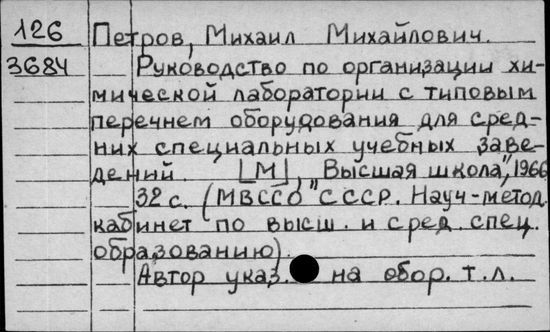 126 Петров, Михаил Михайлович.
3684 Руководство по организации хи-
мической лаборатории с типовым
перечнем оборудования для сред-
них специальных учебных заве-
дений. [М], "Высшая школа", 1966
32 с. (МВССО СССР. Науч-метод.
кабинет по высш. и сред. спец.
образованию).
Автор указ. на обор. т.л.